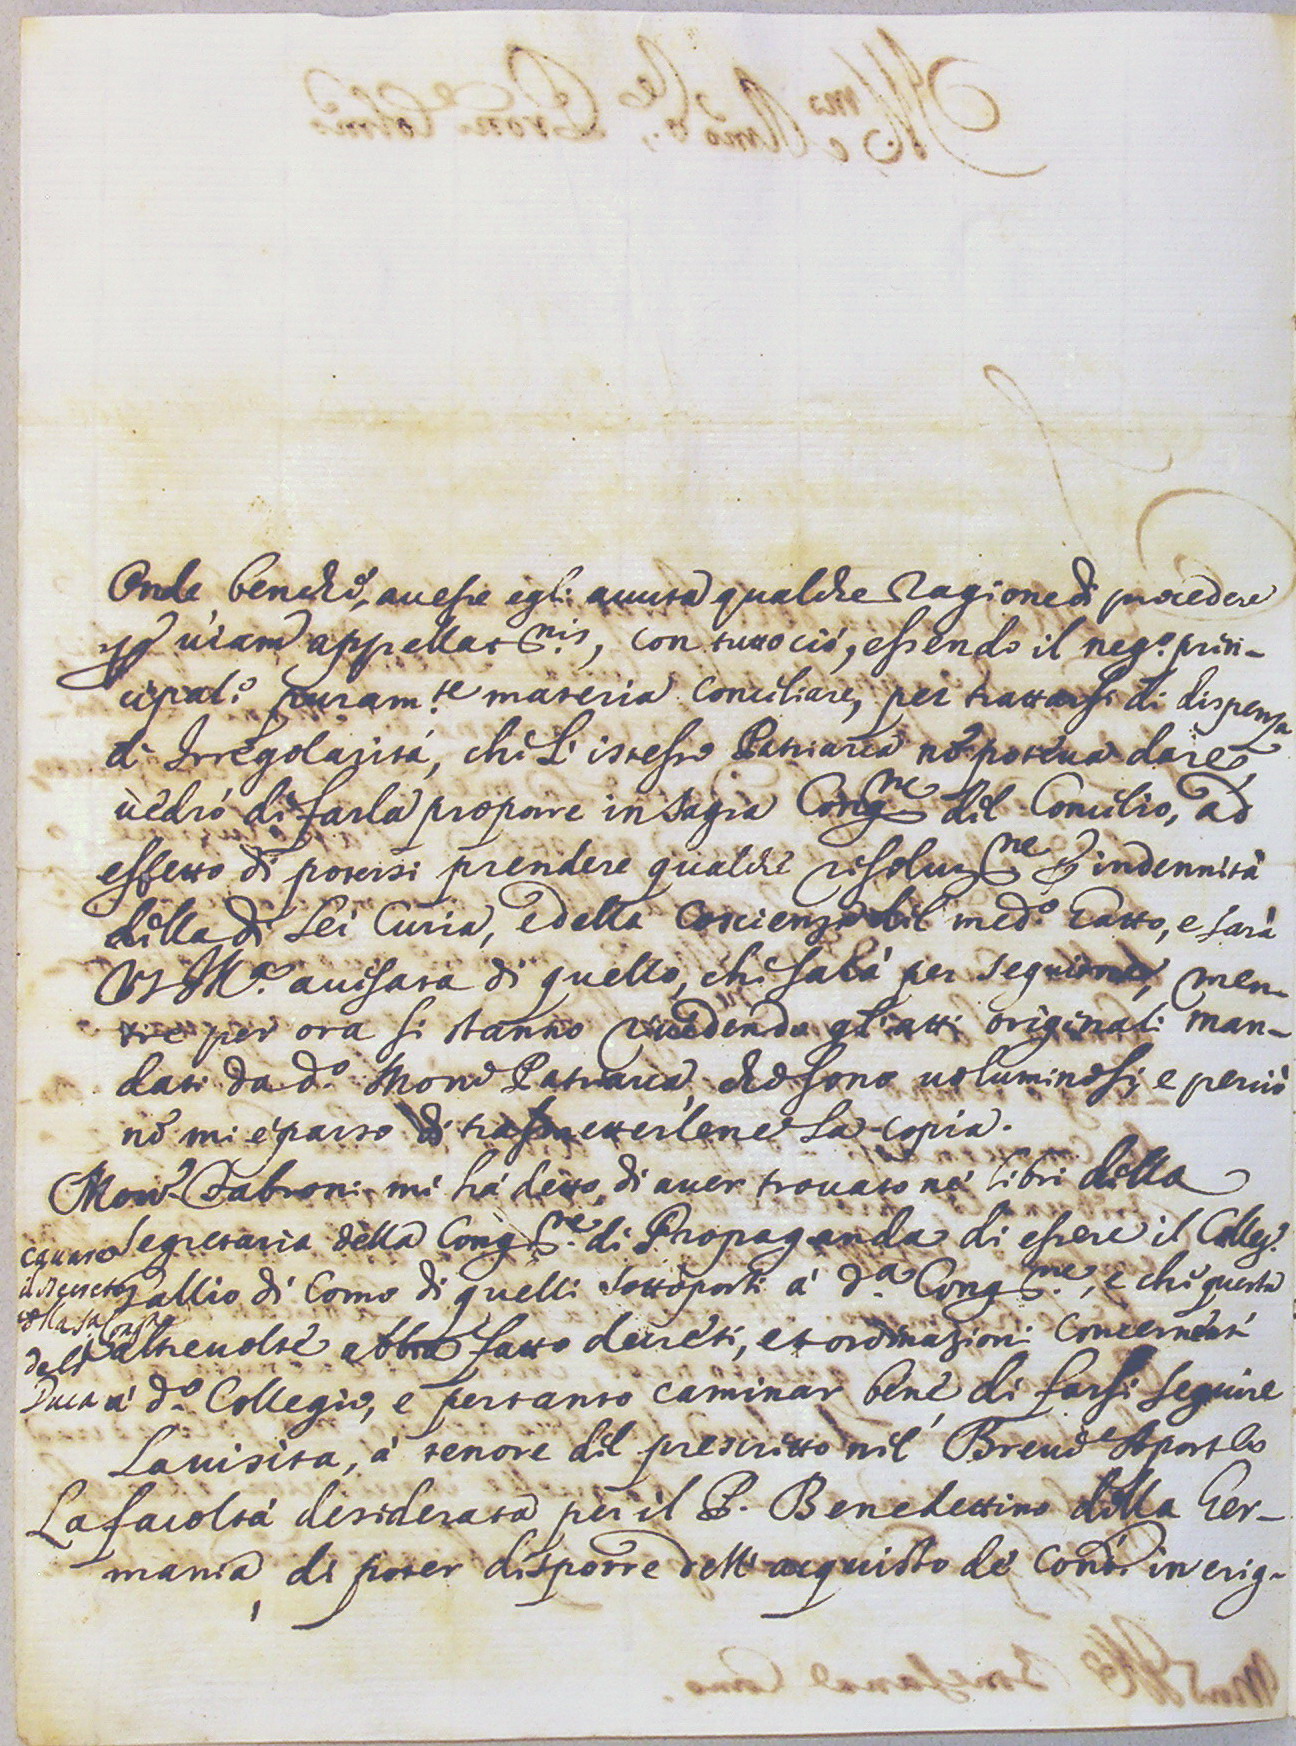 Onde benche avesse egli avuta qualche ragione di procedere
per viam appellat.nis, con tutto ciò, essendo il neg.o prin-
cipal.e puram.te materia Conciliare, per trattarsi di dispensa
d'Irregolarità, che L'istesso Patriarca nō poteva dare,
vedrò di farla proporre in sagra Cong.ne del Concilio, ad
effetto di potersi prendere qualche risoluz.ne p indennità
della di Lei Curia, e della Coscienza del med.o Catto, e sarà
VS Ill.ma avisata di quello, che sarà per seguirne, men-
tre per ora si stanno vedendo gl'atti originali man-
dati da d.o Mons.r Patriarca, che sono voluminosi, e perciò
nō mi è parso di trasmetterlene La copia.
Mons.r Fabroni mi hà detto, di aver trovato ne' libri della
Segretaria della Cong.ne di Propaganda di essere il Colleg.o
Gallio di Como di quelli sottoposti à d.a Cong.ne, e che questa
altre volte abbia fatto decreti, et ordinazioni concernenti
à d.o Collegio, e pertanto caminar bene di farsi seguire
La visita, à tenore del prescritto nel Breve Apost.lo
cavare
il decreto
della sa Cong.ne
del
Duca
La facoltà desiderata per il P. Benedettino della Ger-
mania di poter disporre dell'acquisto de' Conti in erig-